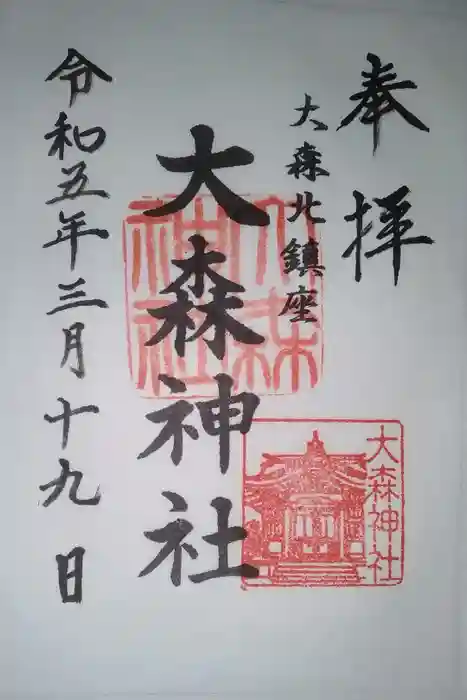 奉拝
大森北鎮座
大森神社
令和五年三月十九日
大森神社
大森神社